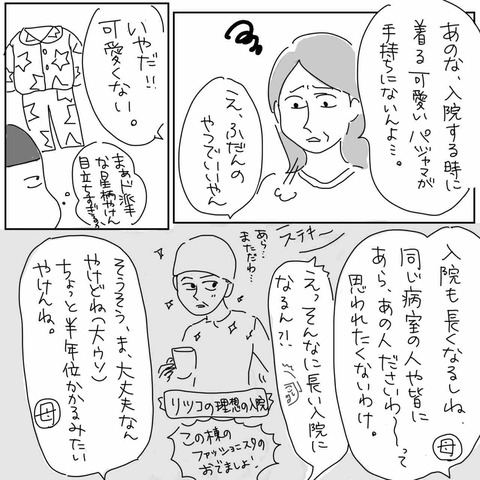 あのな、入院する時に
着る可愛いパジャマが
手持ちにないんよ…。
え、ふだんの
やつでいいやん
いやだ!!
可愛くない。
まぁド派手
な星柄やけん
目立ちすぎるか
入院も長くなるしね、
同じ病室の人や皆に
あら、あの人ださいわ〜って
思われたくないわけ。
母
えっそんなに長い入院に
なるん?!
ステキー
あら…
まただわ…
リツコの理想の入院
この棟の
ファッショニスタの
おでましよ!
そうそう、ま、大丈夫なん
やけどね(大ウソ)
ちょっと半年位かかるみたい
やけんね。
母